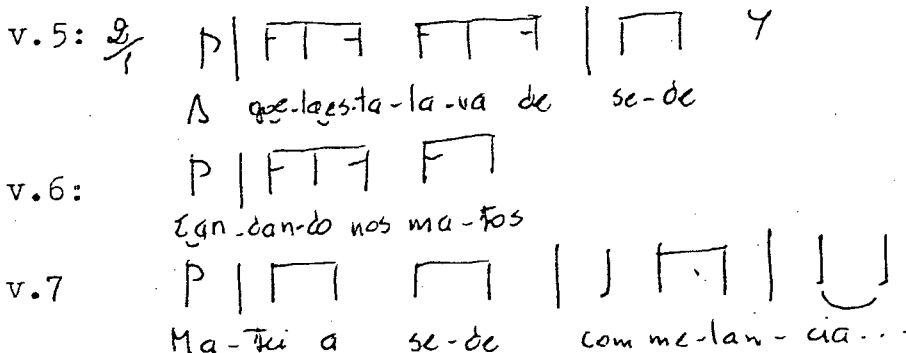 v.5: 2/1
A goe-laes-ta-la-va de se-de
v.6:
Ean-dan-do nos ma-tos
v.7
Ma-tei a se-de com me-lan-cia...